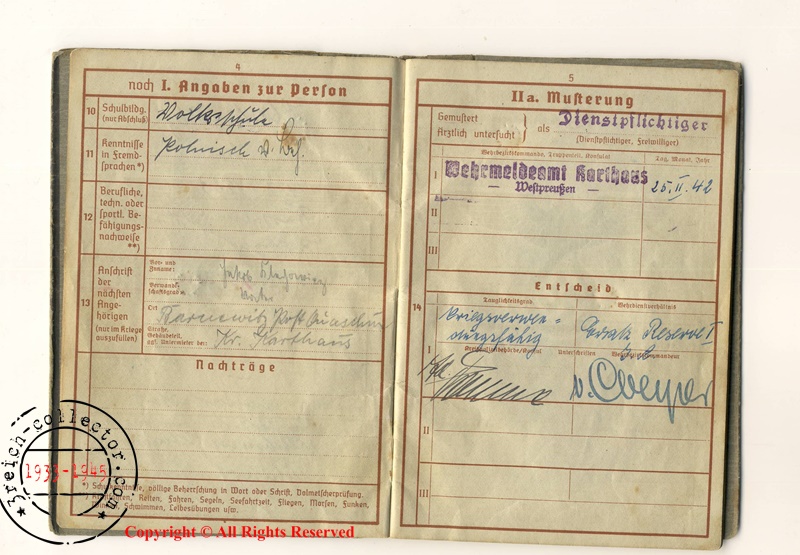 4
noch I. Angaben zur Person
10 Schulbildg. (nur Abschluß)
Volksschule
11 Kenntnisse in Fremdsprachen*)
Polnisch
12 Berufliche, techn. oder sportl. Befähigungsnachweise **)
13 Anschrift der nächsten Angehörigen (nur im Kriege auszufüllen)
Vor- und Zuname:
Verwandtschaftsgrad:
Vater
Ort
Post
Straße, Gebäudeteil, ggf. Untermieter der:
Kr. Karthaus
Nachträge
*) völlige Beherrschung in Wort oder Schrift, Dolmetscherprüfung.
Reiten, Fahren, Segeln, Seefahrtzeit, Fliegen, Morsen, Funken,
Schwimmen, Leibesübungen usw.
5
IIa. Musterung
Gemustert
Ärztlich untersucht } als Dienstpflichtiger
(Dienstpflichtiger, Freiwilliger)
Wehrbezirkskommando, Truppenteil, Konsulat
Tag, Monat, Jahr
I Wehrmeldeamt Karthaus
— Westpreußen —
25. II. 42
II
III
Entscheid
14
Tauglichkeitsgrad
Wehrdienstverhältnis
Ersatz Reserve I
I
Unterschriften
II
III
3reich-collector.com
1933-1945
Copyright © All Rights Reserved